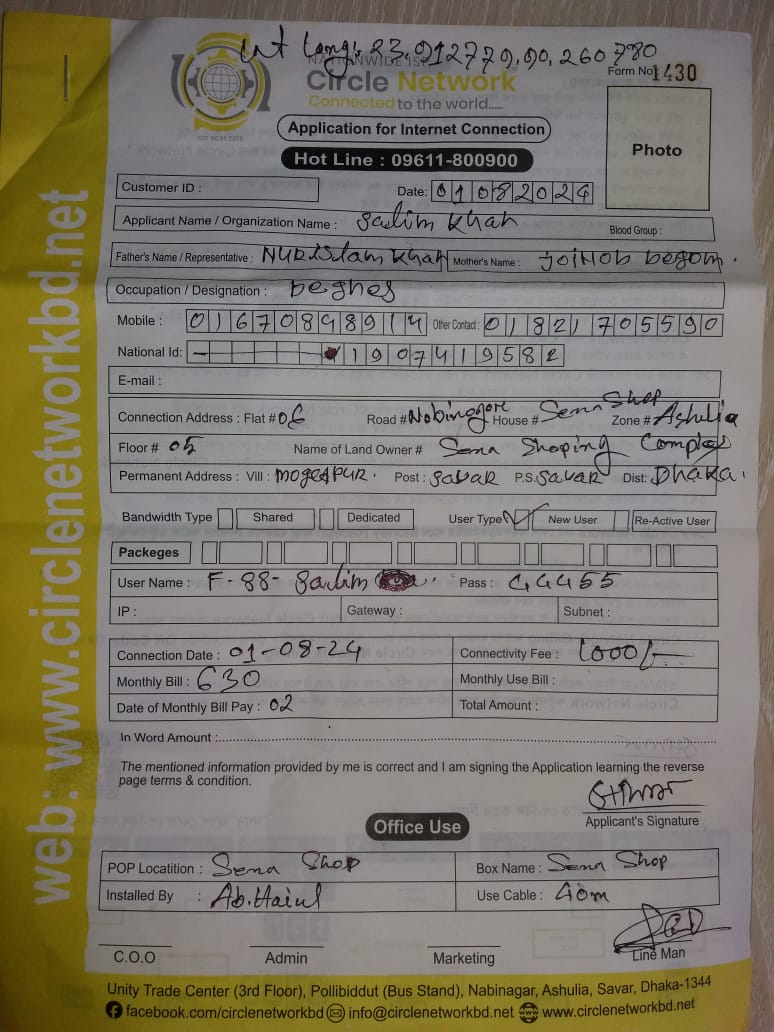 Lat Long: 23.912779,90.260780
NATIONWIDE ISP
Circle Network
Connected to the world.....
ISO 9001:2015
Form No: 1430
Application for Internet Connection
Hot Line : 09611-800900
Photo
Customer ID :
Date: 01082024
Applicant Name / Organization Name : Salim Khan
Blood Group :
Father's Name / Representative : NURISlam Khan Mother's Name : joiNob begom.
Occupation / Designation :
Mobile : 01670898914 Other Contact : 01821705590
National Id: - 1907419582
E-mail :
Connection Address : Flat # 06 Road # House # Sena Shop Zone # Ashulia
Floor # 05 Name of Land Owner # Sena Shoping Complex
Permanent Address : Vill : Post : Savar P.S. Savar Dist: DHAKA.
Bandwidth Type Shared Dedicated User Type New User Re-Active User
Packeges
User Name : F-88-Salim Pass : 44455
IP : Gateway : Subnet :
Connection Date : 01-08-24 Connectivity Fee : 1000/-
Monthly Bill : 630 Monthly Use Bill :
Date of Monthly Bill Pay : 02 Total Amount :
In Word Amount :
The mentioned information provided by me is correct and I am signing the Application learning the reverse
page terms & condition.
Applicant's Signature
Office Use
POP Locatition : Sena Shop Box Name : Sena Shop
Installed By : Use Cable : 40m
C.O.O Admin Marketing Line Man
Unity Trade Center (3rd Floor), Pollibiddut (Bus Stand), Nabinagar, Ashulia, Savar, Dhaka-1344
facebook.com/circlenetworkbd info@circlenetworkbd.net www.circlenetworkbd.net
web: www.circlenetworkbd.net